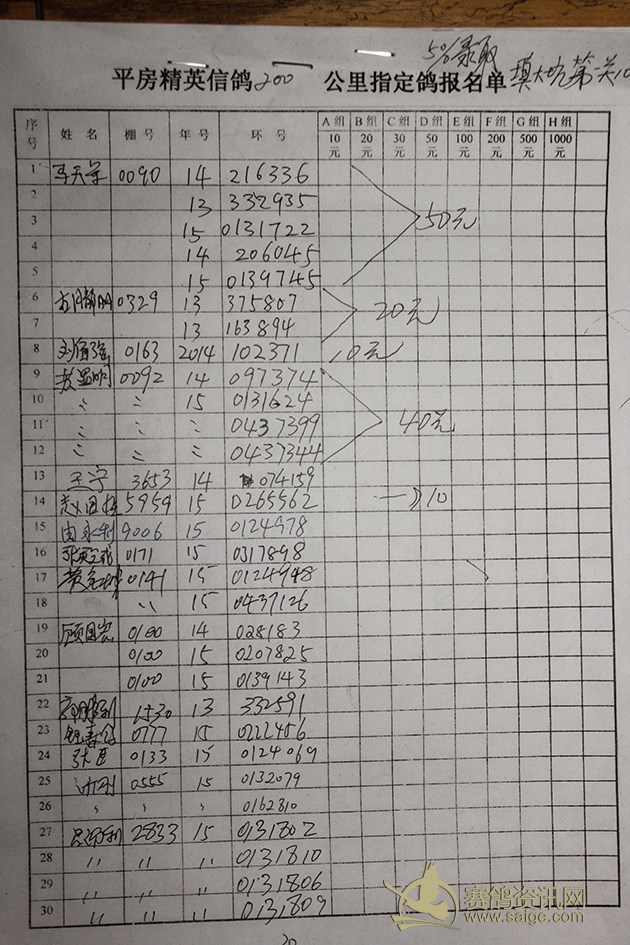 5% 录取
平房精英信鸽200 公里指定鸽报名单 填大坑第一关10
序号 姓 名 棚 号 年 号 环 号 A 组 10 元 B 组 20 元 C 组 30 元 D 组 50 元 E 组 100 元 F 组 200 元 G 组 500 元 H 组 1000 元
1 0090 14 216336
2 13 332935
3 15 0131722 50元
4 14 206045
5 15 0139745
6 0329 13 375807 20元
7 13 163894
8 0163 2014 102371 10元
9 0092 14 097374
10 〃 〃 15 0131624
11 〃 〃 〃 0437399 40元
12 〃 〃 〃 0437344
13 王宁 3653 14 074159
14 5959 15 0265562 10
15 由永利 9006 15 0124978
16 0171 15 0317898
17 0141 15 0124948
18 〃 15 0437126
19 顾国宏 0100 14 028183
20 0100 15 0207825
21 0100 15 0139143
22 1530 13 332591
23 0777 15 0222456
24 0133 15 0124069
25 0555 15 0132079
26 〃 〃 〃 0162810
27 2833 15 0131802
28 〃 〃 〃 0131810
29 〃 〃 〃 0131806
30 〃 〃 〃 0131809
赛鸽资讯网
www.saige.com